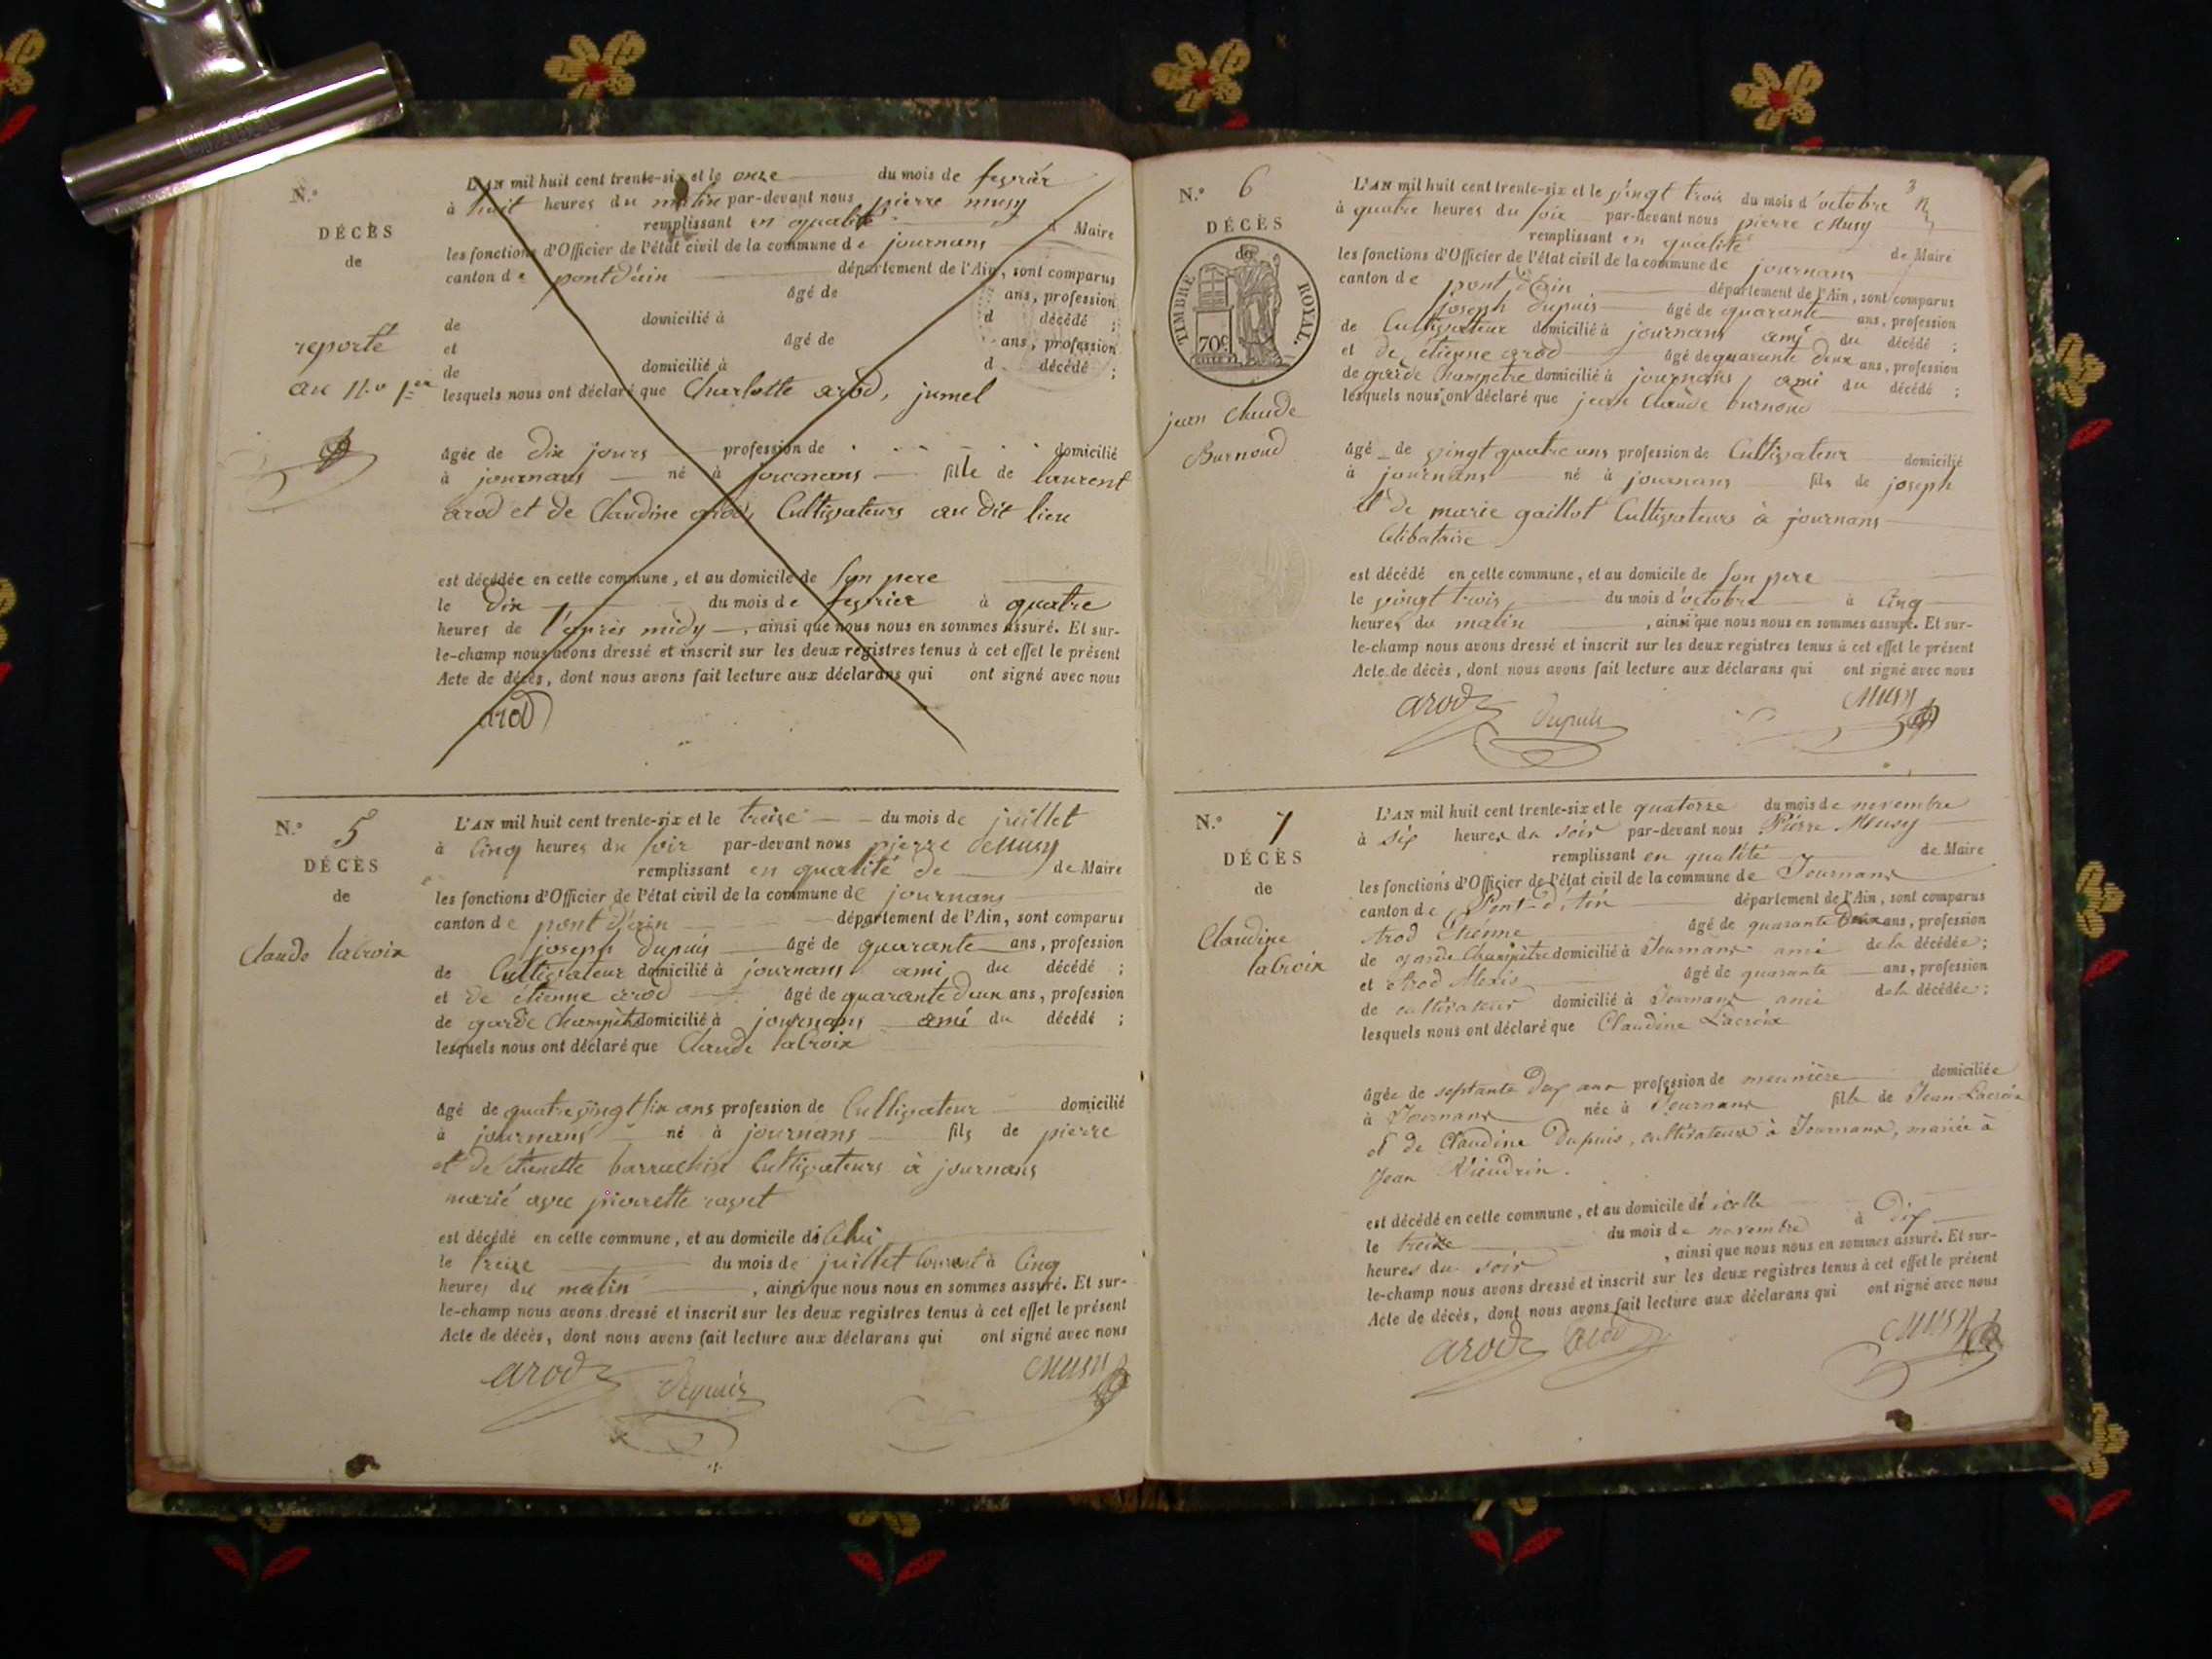 N.º
DÉCÈS
de
reporté
au N.º 1er
L'AN mil huit cent trente-six et le onze du mois de fevrier
à huit heures du matin par-devant nous pierre musy
remplissant en qualité d Maire
les fonctions d'Officier de l'état civil de la commune de journans
canton de pont d'ain département de l'Ain, sont comparus
âgé de ans, profession
de domicilié à d décédé ;
et âgé de ans, profession
de domicilié à d décédé ;
lesquels nous ont déclaré que Charlotte arod, jumel
âgée de dix jours profession de domicilié
à journans né à journans fille de laurent
arod et de Claudine arod, Cultivateurs au dit lieu
est décédée en cette commune, et au domicile de son pere
le dix du mois de fevrier à quatre
heures de l'après midy, ainsi que nous nous en sommes assuré. Et sur-
le-champ nous avons dressé et inscrit sur les deux registres tenus à cet effet le présent
Acte de décès, dont nous avons fait lecture aux déclarans qui ont signé avec nous
arod
N.º 5
DÉCÈS
de
Claude lacroix
L'AN mil huit cent trente-six et le treize du mois de juillet
à Cinq heures du soir par-devant nous pierre Musy
remplissant en qualité de de Maire
les fonctions d'Officier de l'état civil de la commune de journans
canton de pont d'ain département de l'Ain, sont comparus
joseph dupuis âgé de quarante ans, profession
de Cultivateur domicilié à journans ami du décédé ;
et de étienne arod âgé de quarante deux ans, profession
de garde Champêtre domicilié à journans ami du décédé ;
lesquels nous ont déclaré que Claude laCroix
âgé de quatre vingt six ans profession de Cultivateur domicilié
à journans né à journans fils de pierre
et de barrachin Cultivateurs à journans
marié avec pierrette ravet
est décédé en cette commune, et au domicile de lui
le treize du mois de juillet Courant à Cinq
heures du matin, ainsi que nous nous en sommes assuré. Et sur-
le-champ nous avons dressé et inscrit sur les deux registres tenus à cet effet le présent
Acte de décès, dont nous avons fait lecture aux déclarans qui ont signé avec nous
arod dupuis Musy
3
N.º 6
DÉCÈS
de
TIMBRE ROYAL.
70c
jean Claude
Burnoud
L'AN mil huit cent trente-six et le vingt trois du mois d'octobre
à quatre heures du soir par-devant nous pierre Musy
remplissant en qualité de Maire
les fonctions d'Officier de l'état civil de la commune de journans
canton de pont d'ain département de l'Ain, sont comparus
joseph dupuis âgé de quarante ans, profession
de Cultivateur domicilié à journans ami du décédé ;
et de étienne arod âgé de quarante deux ans, profession
de garde Champetre domicilié à journans ami du décédé ;
lesquels nous ont déclaré que jean Claude burnoud
âgé de vingt quatre ans profession de Cultivateur domicilié
à journans né à journans fils de joseph
et de marie gaillot Cultivateurs à journans
Celibataire
est décédé en cette commune, et au domicile de son pere
le vingt trois du mois d'octobre à Cinq
heures du matin, ainsi que nous nous en sommes assuré. Et sur-
le-champ nous avons dressé et inscrit sur les deux registres tenus à cet effet le présent
Acte de décès, dont nous avons fait lecture aux déclarans qui ont signé avec nous
arod dupuis Musy
N.º 7
DÉCÈS
de
Claudine
laCroix
L'AN mil huit cent trente-six et le quatorze du mois de novembre
à six heures du soir par-devant nous Pierre Musy
remplissant en qualité de Maire
les fonctions d'Officier de l'état civil de la commune de Journans
canton de Pont-d'Ain département de l'Ain, sont comparus
Arod Etienne âgé de quarante deux ans, profession
de garde Champêtre domicilié à Journans ami de la décédée ;
et Arod Alexis âgé de quarante ans, profession
de cultivateur domicilié à Journans ami de la décédée ;
lesquels nous ont déclaré que Claudine Lacroix
âgée de septante dix ans profession de meunière domiciliée
à Journans née à Journans fille de Jean Lacroix
et de Claudine Dupuis, cultivateurs à Journans, mariée à
Jean
est décédé en cette commune, et au domicile de icelle
le treize du mois de novembre à dix
heures du soir, ainsi que nous nous en sommes assuré. Et sur-
le-champ nous avons dressé et inscrit sur les deux registres tenus à cet effet le présent
Acte de décès, dont nous avons fait lecture aux déclarans qui ont signé avec nous
arod arod Musy